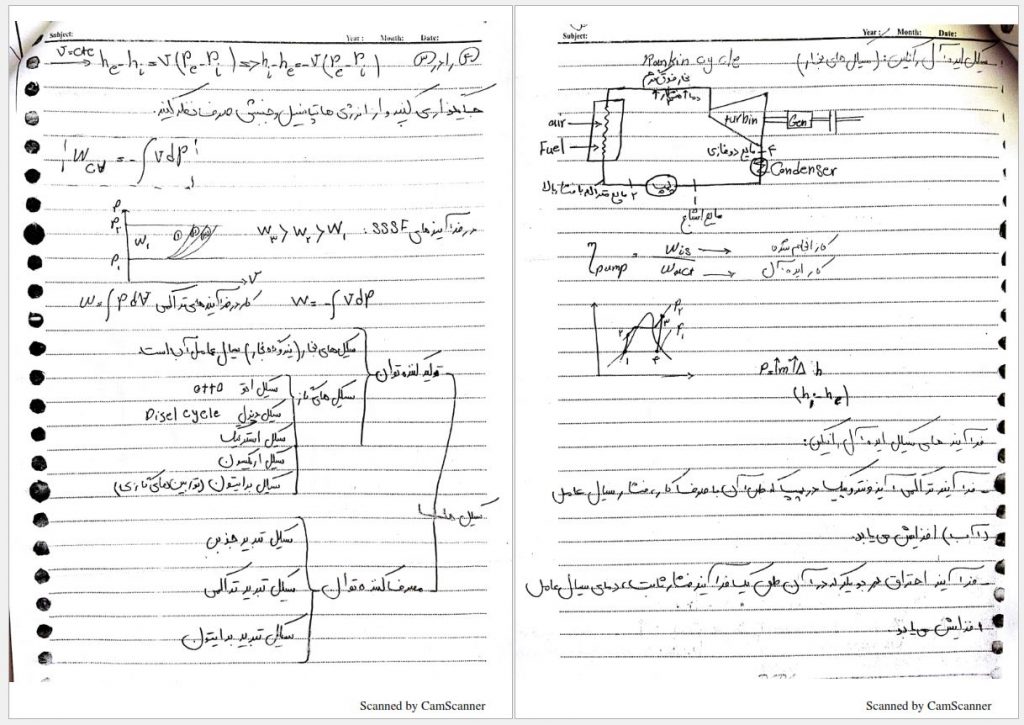 Subject:
Year: Month: Date:
V=cte → he-hi=V(Pe-Pi) => hi-he=-V(Pe-Pi)
جایگذاری کنید و از انرژی ها پتانسیل و جنبشی صرف نظر کنید.
Wcv = -∫vdP
P
P2
P1
W1
① ② ③
V
در فرآیندهای SSSF: W3 > W2 > W1
W=∫PdV کار در فرآیندهای تراکمی W=-∫VdP
سیکل ها
تولید کننده توان
سیکل های بخار سیال عامل آن است.
سیکل های گاز
سیکل اتو otto
سیکل دیزل Disel cycle
سیکل استرلینگ
سیکل اریکسون
سیکل برایتون (توربین های گازی)
مصرف کننده توان
سیکل تبرید جذبی
سیکل تبرید تراکمی
سیکل تبرید برایتون
Scanned by CamScanner
Subject:
Year: Month: Date:
سیکل ایده آل رانکین: (سیکل های بخار) Rankin cycle
بخار فوق گرم
air
Fuel
turbin
Gen
۴ مایع دو فازی
Condenser
پمپ
۲
مایع اشباع
η pump = Wis / Wact
کار انجام شده
کار ایده آل
P2
P1
1 2 3 4
P=↑m↑Δh
(hi-he)
فرآیند های سیکل ایده آل رانکین:
- فرآیند تراکم آیزونتروپیک در پمپ که طی آن با صرف کار، فشار سیال عامل
(آب) افزایش می یابد.
- فرآیند احتراق در بویلر که در آن طی یک فرآیند فشار ثابت، دمای سیال عامل
افزایش می یابد.
Scanned by CamScanner